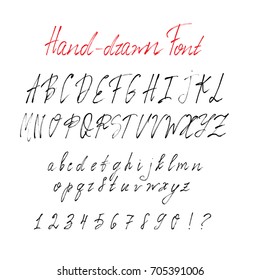 Hand-drawn Font
ABCDEFGHIJKL
MNOPQRSTUVWXYZ
abcdefghijklmn
opqrstuvwxyz
1234567890!?
shutterstock.com · 705391006